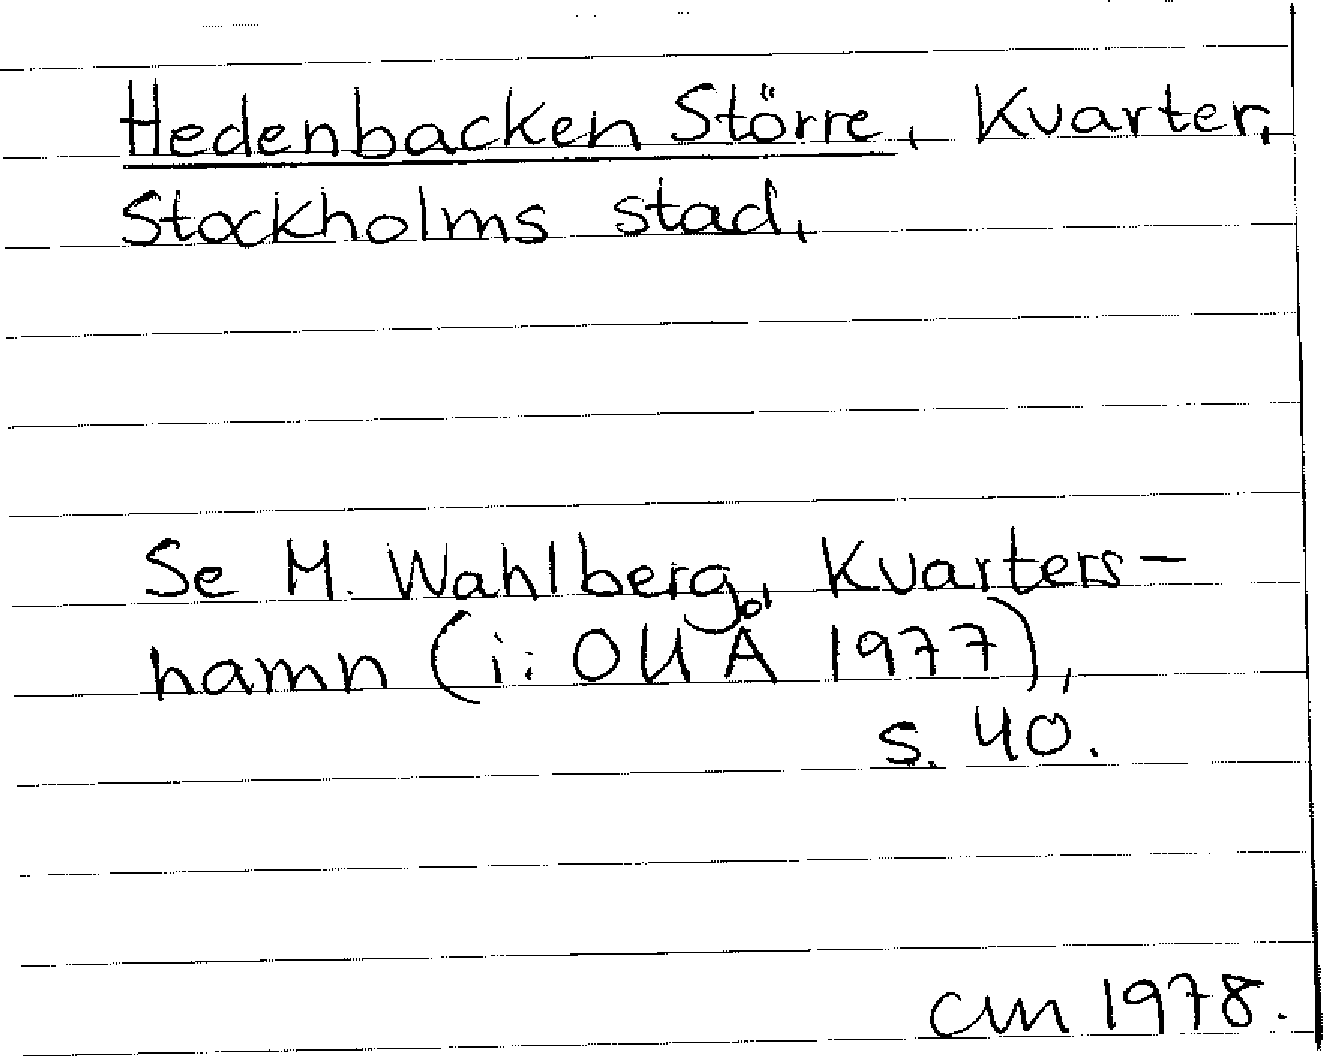 Hedenbacken Större, Kvarter,
Stockholms stad,
Se M. Wahlberg, Kvarters-
namn (i: OUÅ 1977),
s. 40.
CM 1978.